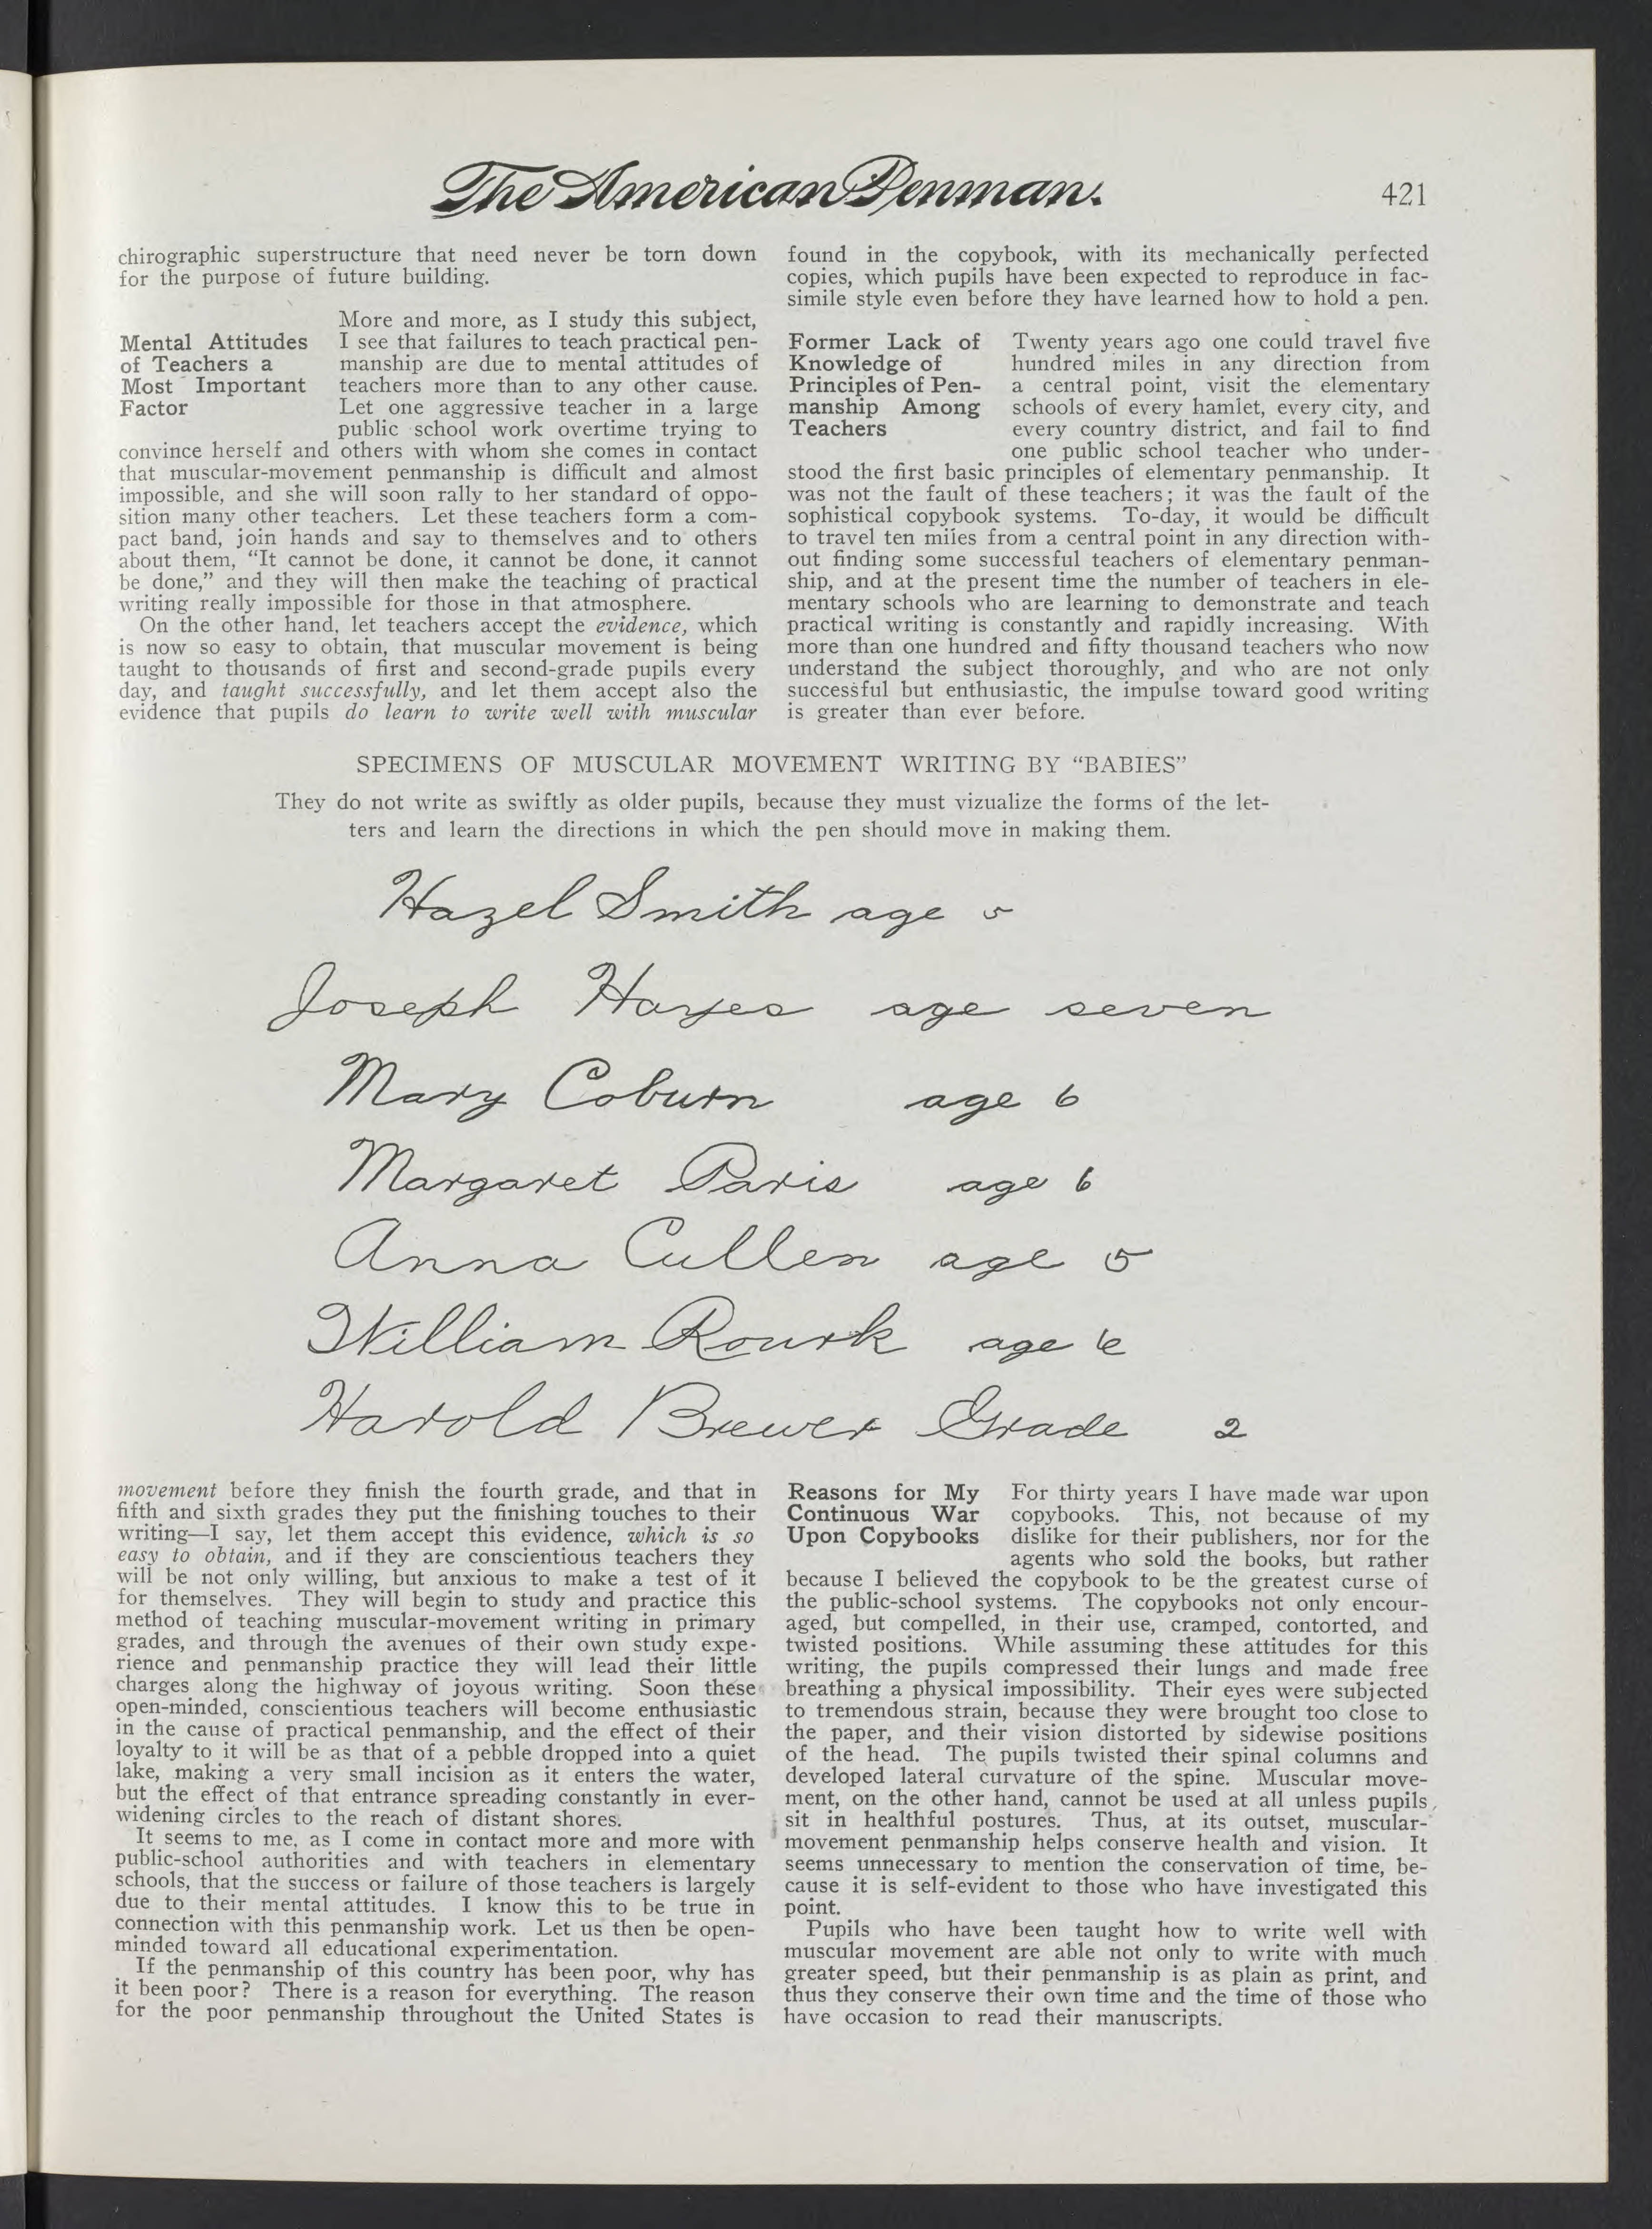 The American Penman.
421
chirographic superstructure that need never be torn down
for the purpose of future building.
Mental Attitudes
of Teachers a
Most Important
Factor
More and more, as I study this subject,
I see that failures to teach practical pen-
manship are due to mental attitudes of
teachers more than to any other cause.
Let one aggressive teacher in a large
public school work overtime trying to
convince herself and others with whom she comes in contact
that muscular-movement penmanship is difficult and almost
impossible, and she will soon rally to her standard of oppo-
sition many other teachers. Let these teachers form a com-
pact band, join hands and say to themselves and to others
about them, “It cannot be done, it cannot be done, it cannot
be done,” and they will then make the teaching of practical
writing really impossible for those in that atmosphere.
On the other hand, let teachers accept the evidence, which
is now so easy to obtain, that muscular movement is being
taught to thousands of first and second-grade pupils every
day, and taught successfully, and let them accept also the
evidence that pupils do learn to write well with muscular
found in the copybook, with its mechanically perfected
copies, which pupils have been expected to reproduce in fac-
simile style even before they have learned how to hold a pen.
Former Lack of
Knowledge of
Principles of Pen-
manship Among
Teachers
Twenty years ago one could travel five
hundred miles in any direction from
a central point, visit the elementary
schools of every hamlet, every city, and
every country district, and fail to find
one public school teacher who under-
stood the first basic principles of elementary penmanship. It
was not the fault of these teachers; it was the fault of the
sophistical copybook systems. To-day, it would be difficult
to travel ten miles from a central point in any direction with-
out finding some successful teachers of elementary penman-
ship, and at the present time the number of teachers in ele-
mentary schools who are learning to demonstrate and teach
practical writing is constantly and rapidly increasing. With
more than one hundred and fifty thousand teachers who now
understand the subject thoroughly, and who are not only
successful but enthusiastic, the impulse toward good writing
is greater than ever before.
SPECIMENS OF MUSCULAR MOVEMENT WRITING BY “BABIES”
They do not write as swiftly as older pupils, because they must vizualize the forms of the let-
ters and learn the directions in which the pen should move in making them.
Hazel Smith age 5
Joseph Hayes age seven
Mary Coburn age 6
Margaret Paris age 6
Anna Cullen age 5
William Rourk age 6
Harold Brewer Grade 2
movement before they finish the fourth grade, and that in
fifth and sixth grades they put the finishing touches to their
writing—I say, let them accept this evidence, which is so
easy to obtain, and if they are conscientious teachers they
will be not only willing, but anxious to make a test of it
for themselves. They will begin to study and practice this
method of teaching muscular-movement writing in primary
grades, and through the avenues of their own study expe-
rience and penmanship practice they will lead their little
charges along the highway of joyous writing. Soon these
open-minded, conscientious teachers will become enthusiastic
in the cause of practical penmanship, and the effect of their
loyalty to it will be as that of a pebble dropped into a quiet
lake, making a very small incision as it enters the water,
but the effect of that entrance spreading constantly in ever-
widening circles to the reach of distant shores.
It seems to me, as I come in contact more and more with
public-school authorities and with teachers in elementary
schools, that the success or failure of those teachers is largely
due to their mental attitudes. I know this to be true in
connection with this penmanship work. Let us then be open-
minded toward all educational experimentation.
If the penmanship of this country has been poor, why has
it been poor? There is a reason for everything. The reason
for the poor penmanship throughout the United States is
Reasons for My
Continuous War
Upon Copybooks
For thirty years I have made war upon
copybooks. This, not because of my
dislike for their publishers, nor for the
agents who sold the books, but rather
because I believed the copybook to be the greatest curse of
the public-school systems. The copybooks not only encour-
aged, but compelled, in their use, cramped, contorted, and
twisted positions. While assuming these attitudes for this
writing, the pupils compressed their lungs and made free
breathing a physical impossibility. Their eyes were subjected
to tremendous strain, because they were brought too close to
the paper, and their vision distorted by sidewise positions
of the head. The pupils twisted their spinal columns and
developed lateral curvature of the spine. Muscular move-
ment, on the other hand, cannot be used at all unless pupils
sit in healthful postures. Thus, at its outset, muscular-
movement penmanship helps conserve health and vision. It
seems unnecessary to mention the conservation of time, be-
cause it is self-evident to those who have investigated this
point.
Pupils who have been taught how to write well with
muscular movement are able not only to write with much
greater speed, but their penmanship is as plain as print, and
thus they conserve their own time and the time of those who
have occasion to read their manuscripts.